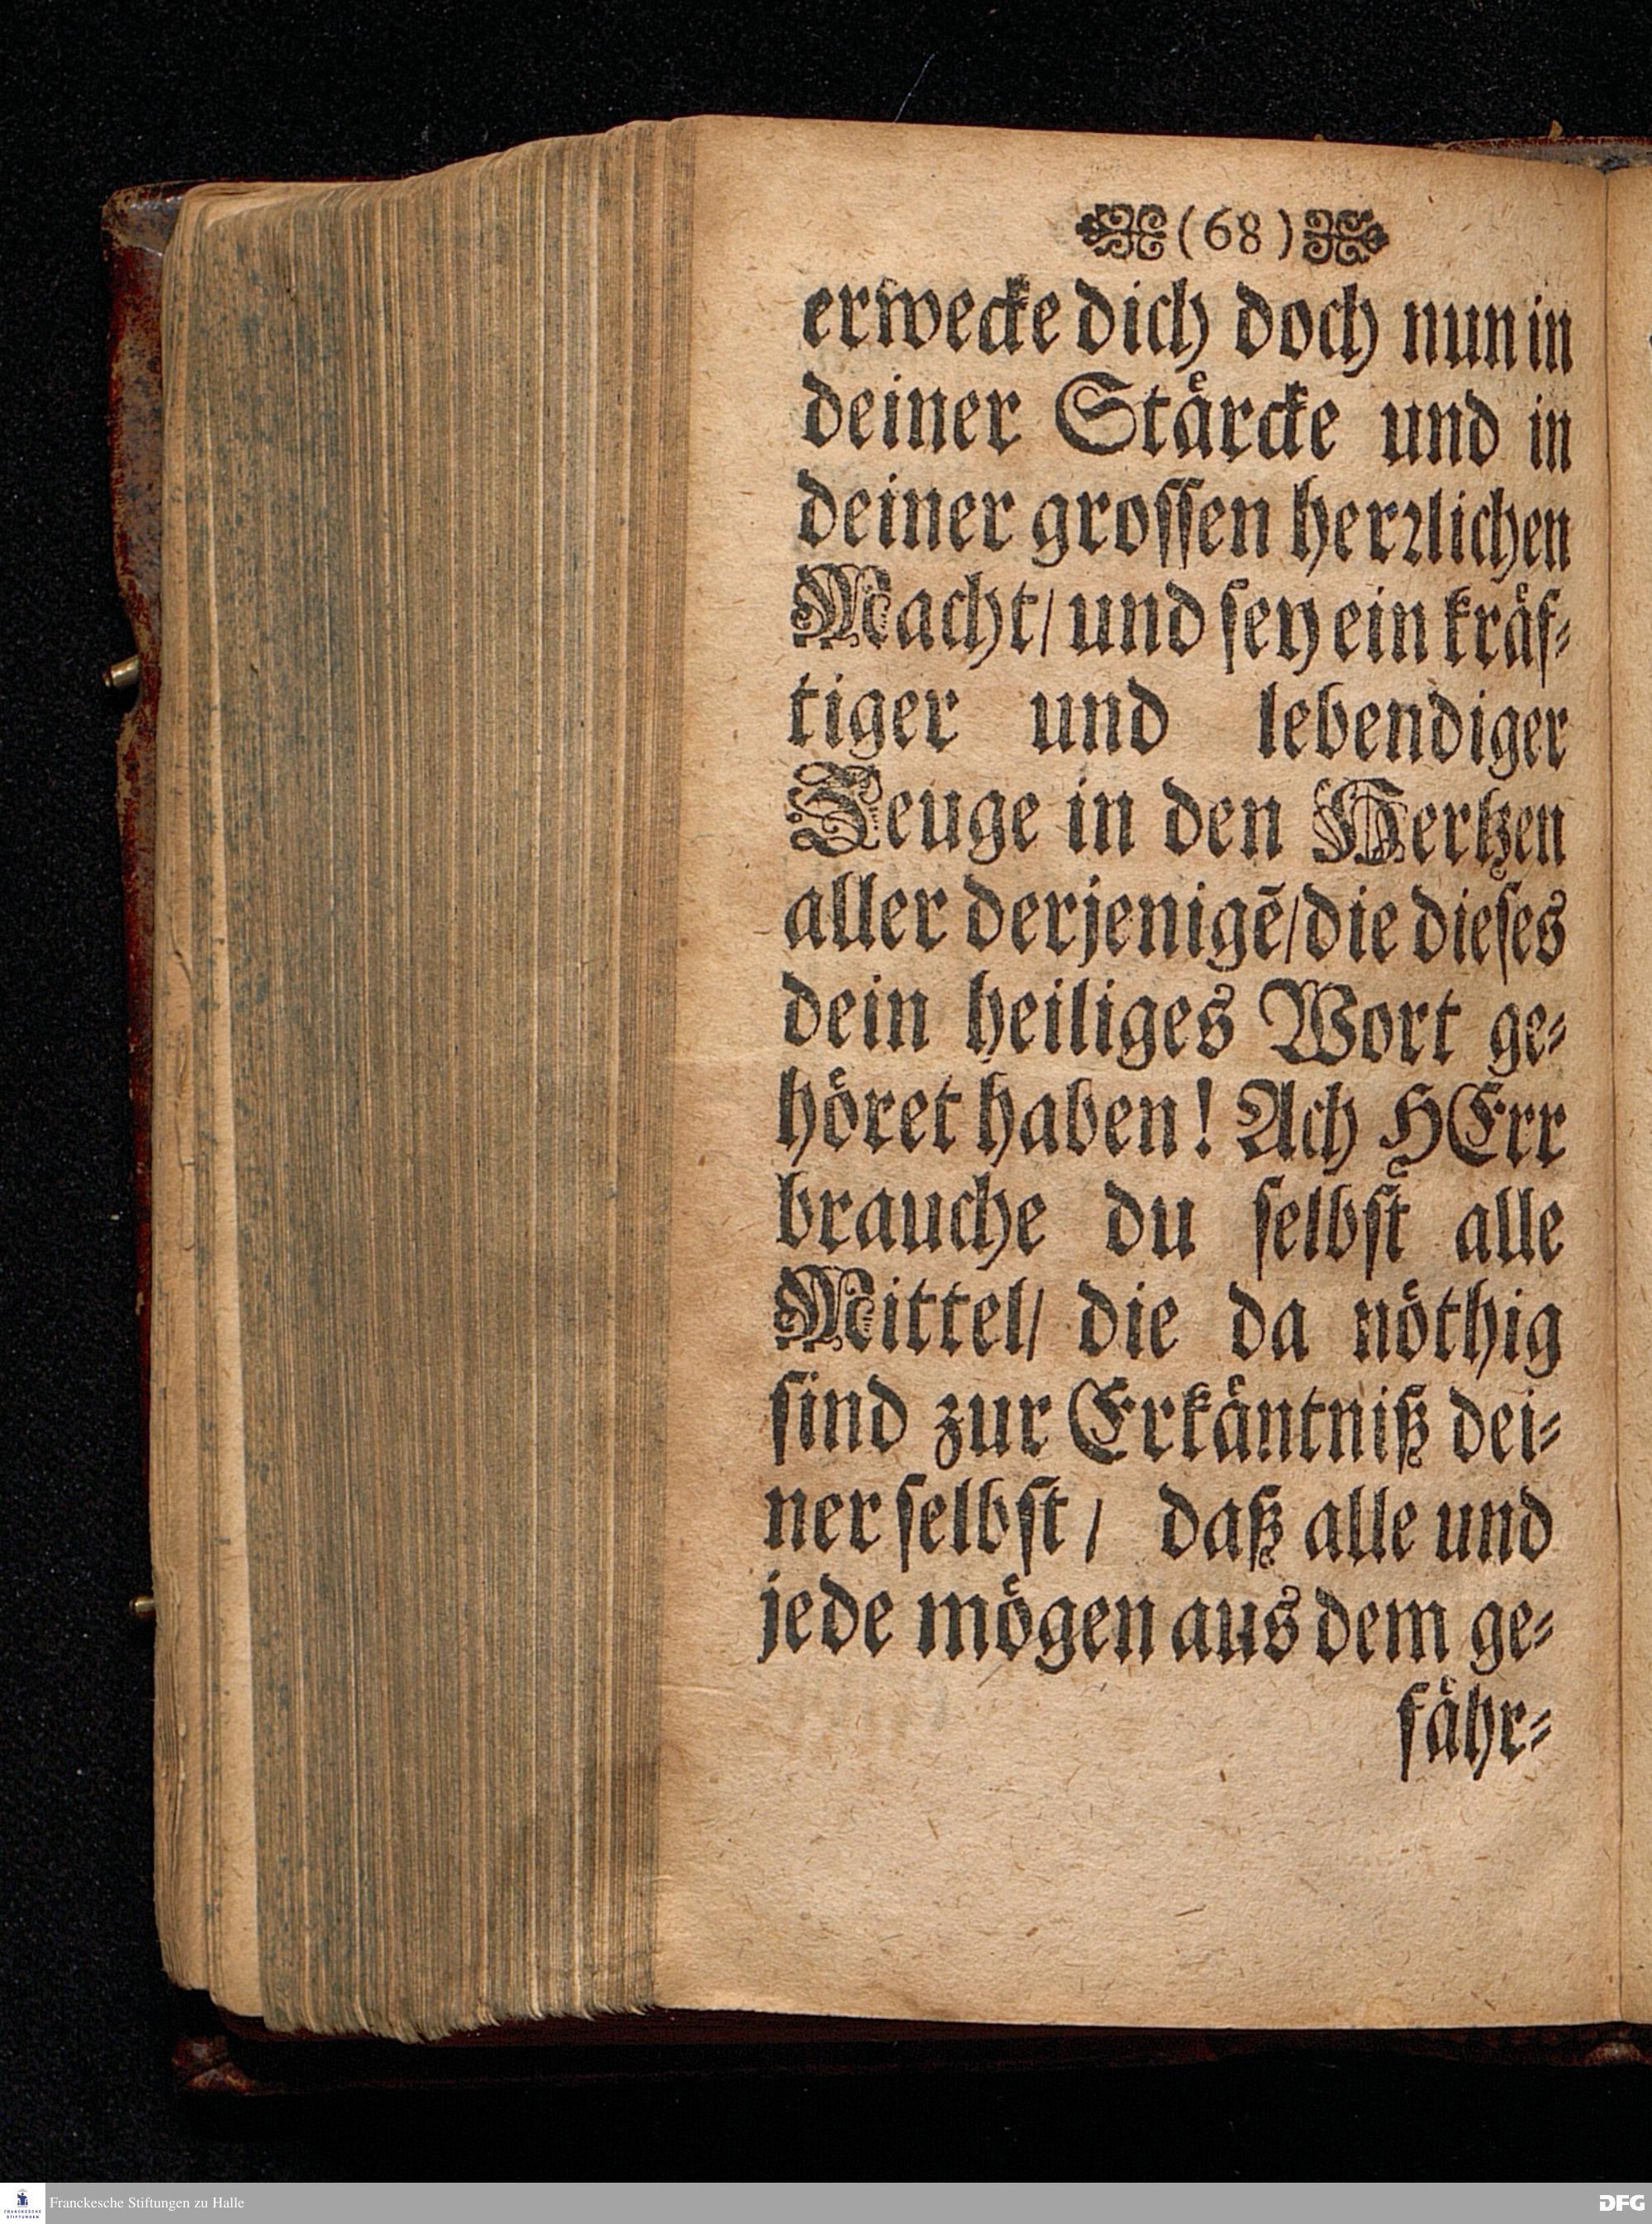 (68)
erwecke dich doch nun in
deiner Staͤrcke und in
deiner groſſen herꝛlichen
Macht/ und ſey ein kraͤf⸗
tiger und lebendiger
Zeuge in den Hertzen
aller derjenigẽ/ die dieſes
dein heiliges Wort ge⸗
hoͤret haben! Ach HErr
brauche du ſelbſt alle
Mittel/ die da noͤthig
ſind zur Erkaͤntniß dei⸗
ner ſelbſt/ daß alle und
jede moͤgen aus dem ge⸗
faͤhr⸗
FRANCKESCHE
STIFTUNGEN
Franckesche Stiftungen zu Halle
DFG